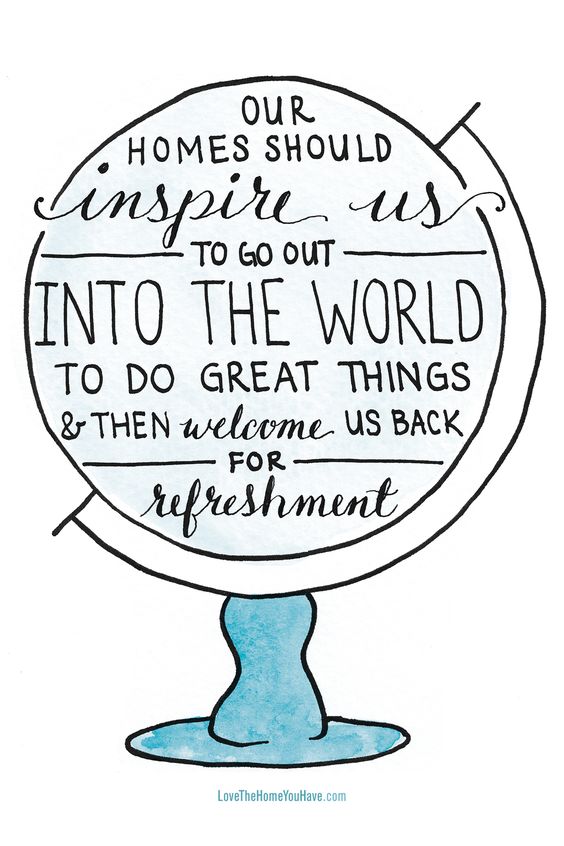 OUR
HOMES SHOULD
inspire us
TO GO OUT
INTO THE WORLD
TO DO GREAT THINGS
& THEN welcome US BACK
FOR
refreshment
LoveTheHomeYouHave.com